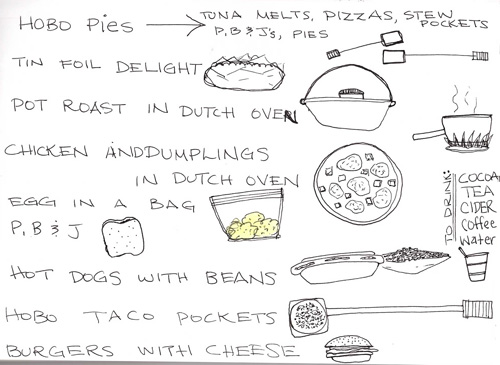 HOBO PieS → TUNA MELTS, PIZZAS, STEW POCKETS
P, B & J's, PIES
TIN FOIL DELIGHT
POT ROAST IN DUTCH OVEN
CHICKEN AND DUMPLINGS
IN DUTCH OVEN
EGG IN A BAG
P, B & J
TO DRINK:
COCOA
TEA
CIDER
Coffee
Water
HOT DOGS WITH BEANS
HOBO TACO POCKETS
BURGERS WITH CHEESE